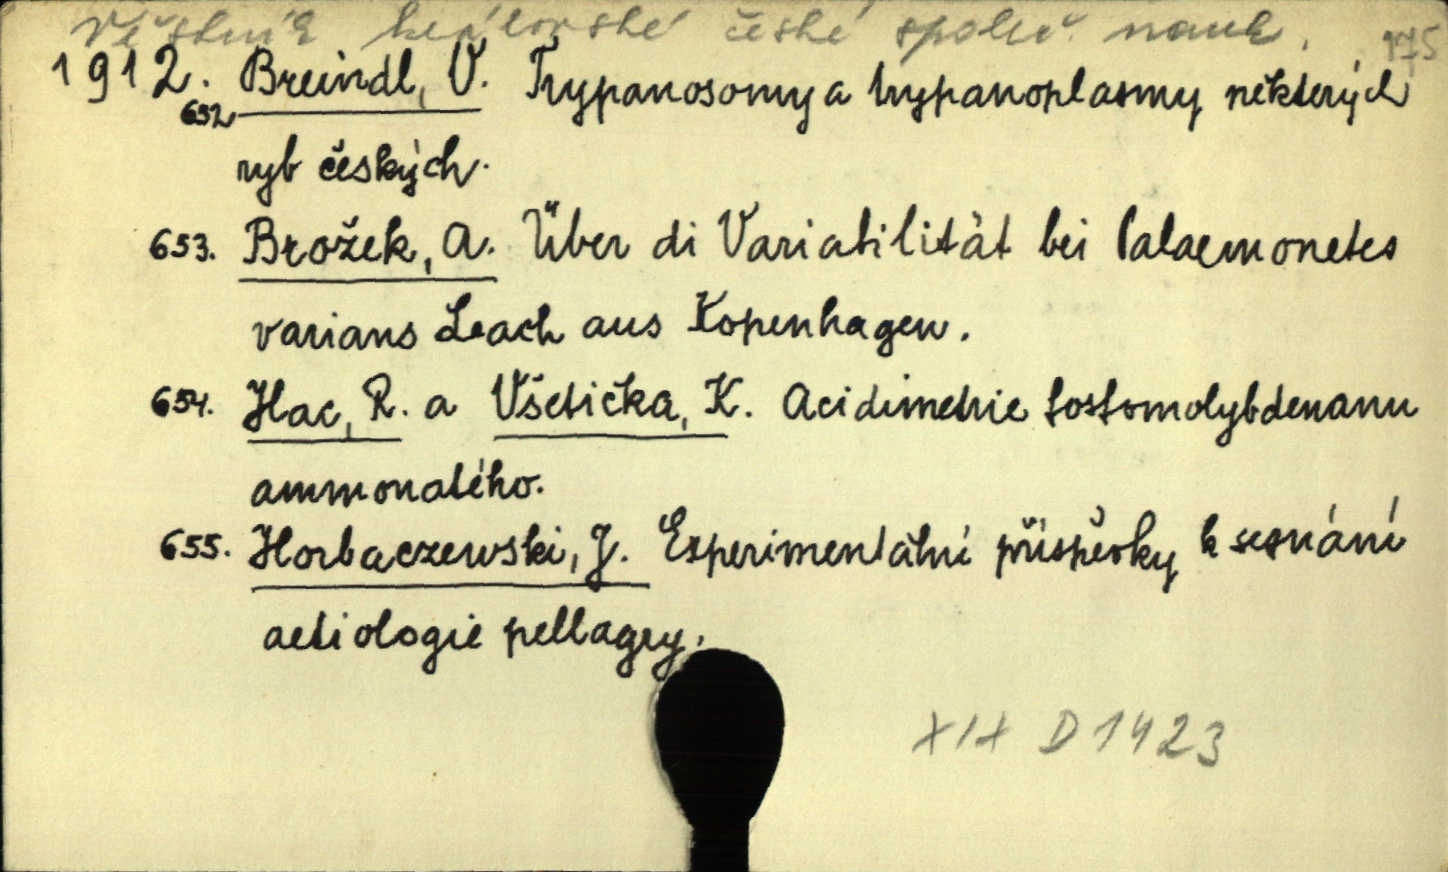 Věstník královské české společ. nauk. 175
1912. Breindl, V. Trypanosomy a trypanoplasmy některých
652
ryb českých.
653. Brožek, A. Über di Variabilität bei Palaemonetes
varians Leach aus Kopenhagen.
654. Hac, R. a Všetička, K. Acidimetrie fosfomolybdenanu
ammonatého.
655. Horbaczewski, J. Experimentální příspěvky k seznání
aetiologie pellagry.
XIX D 1423